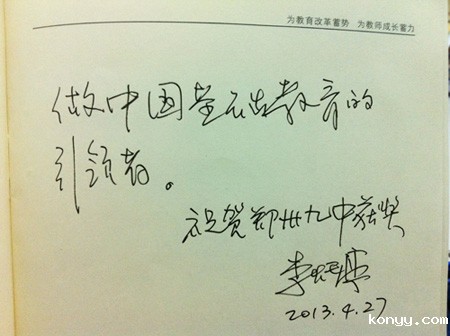 为教育改革蓄势 为教师成长蓄力
做中国基础教育的
引领者。
祝贺郑州九中获奖
李炳亭
2013.4.27
konyy.com